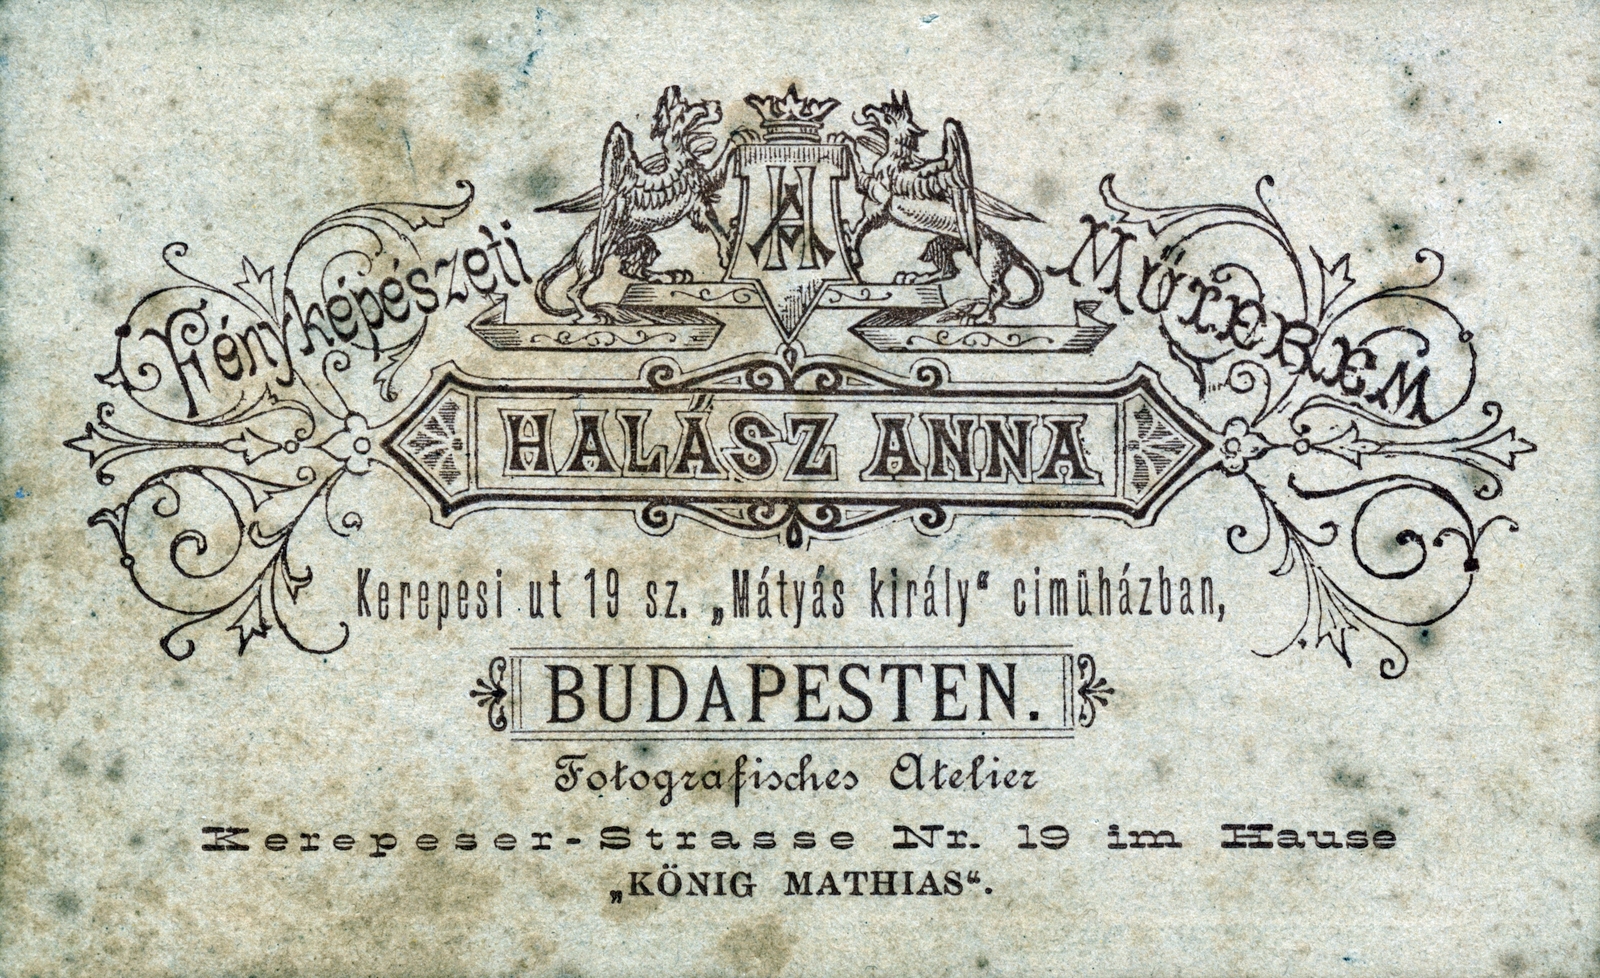 Fényképészeti Műterem
HA
HALÁSZ ANNA
Kerepesi ut 19 sz. „Mátyás király“ cimüházban,
BUDAPESTEN.
Fotografisches Atelier
Kerepeser-Strasse Nr. 19 im Hause
„KÖNIG MATHIAS“.